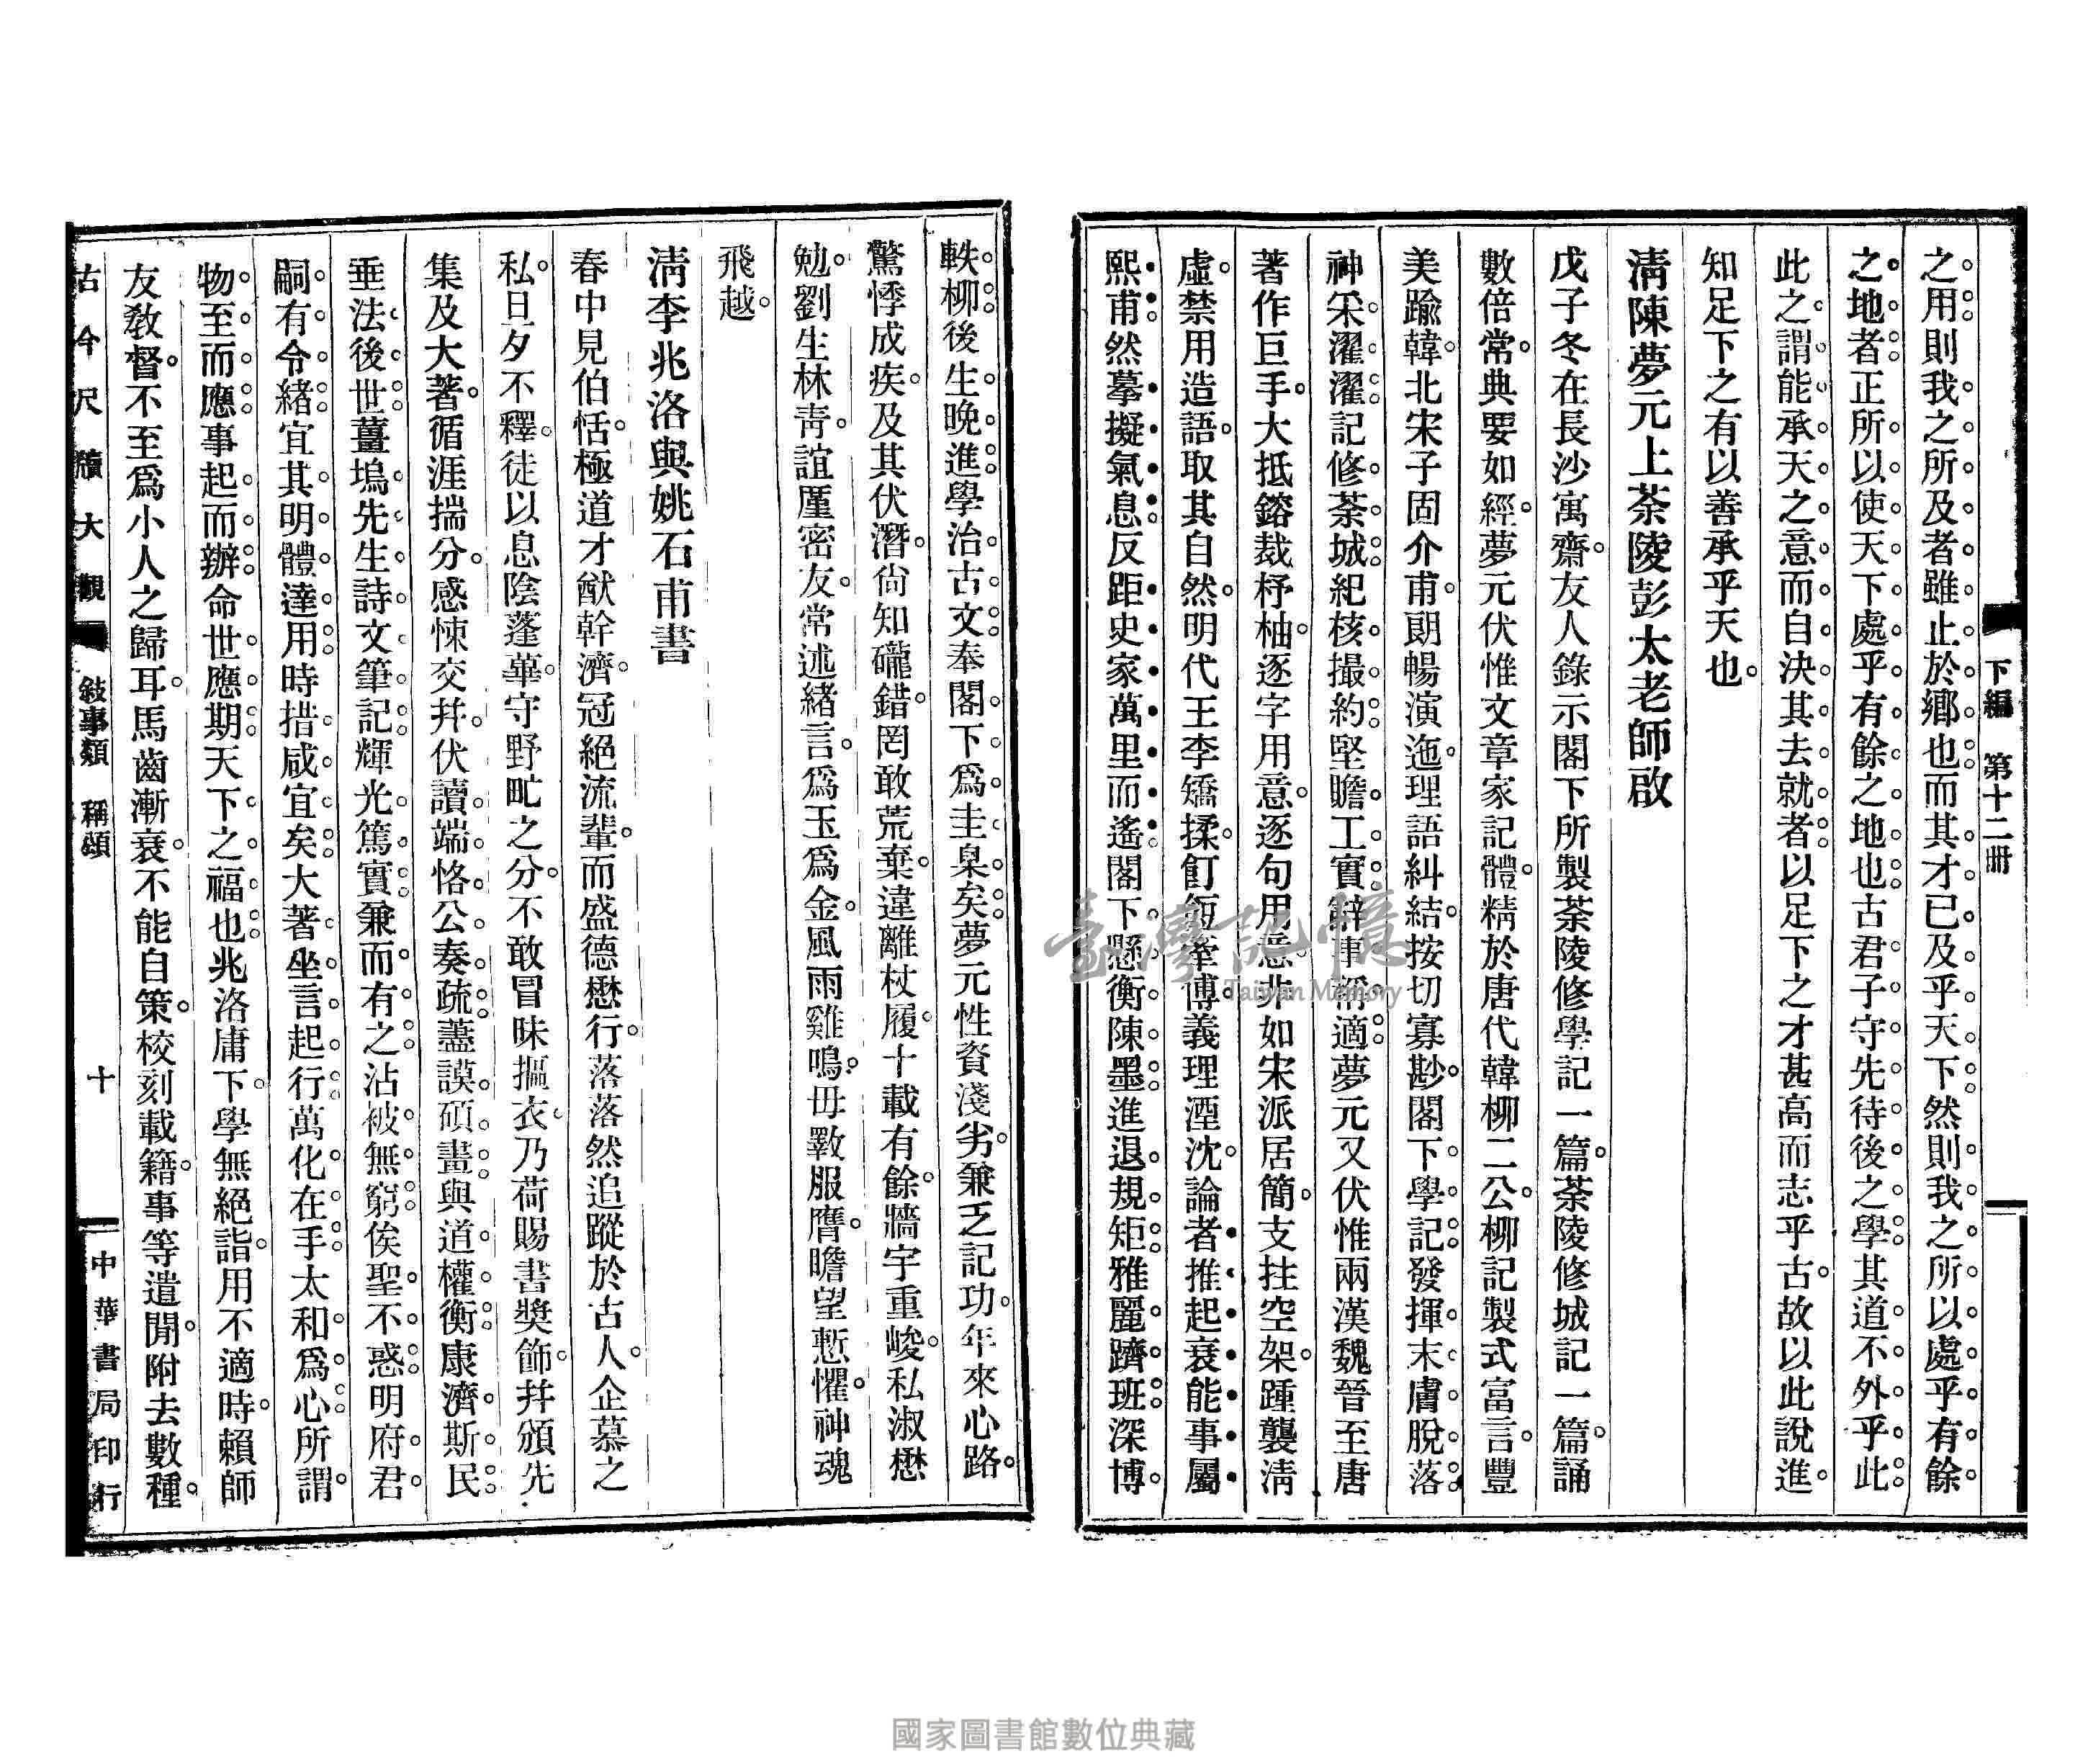 下編　第十二冊
之用則我之所及者雖止於鄉也而其才已及乎天下然則我之所以處乎有餘
之地者正所以使天下處乎有餘之地也古君子守先待後之學其道不外乎此
此之謂能承天之意而自決其去就者以足下之才甚高而志乎古故以此說進
知足下之有以善承乎天也。
清陳夢元上荼陵彭太老師啟
戊子冬在長沙寓齋。友人錄示閣下所製荼陵修學記一篇。荼陵修城記一篇。誦
數倍常。典要如經。夢元伏惟文章家記體。精於唐代韓柳二公。柳記製式富言。豐
美踰韓。北宋子固介甫。朗暢演迤。理語糾結。按切寡尠。閣下學記發揮末膚脫落
神采濯濯記修荼城紀核撮約堅贍工實辭事稱適夢元又伏惟兩漢魏晉至唐
著作巨手。大抵鎔裁杼柚。逐字用意。逐句用意。非如宋派居簡。支拄空架。踵襲清
虛。禁用造語。取其自然。明代王李矯揉。飣餖牽博。義理湮沈。論者推起衰能事屬
熙甫然摹擬氣息反距史家萬里而遙閣下懸衡陳墨進退規矩雅麗躋班深博
軼柳後生晚進學治古文奉閣下為圭臬矣夢元性資淺劣。兼乏記功。年來心路。
驚悸成疾。及其伏潛。尙知礲錯。罔敢荒棄。違離杖履。十載有餘。牆宇重峻。私淑懋
勉。劉生林靑。誼厪密友。常述緒言。為玉為金。風雨雞鳴。毋斁服膺。瞻望慙懼。神魂
飛越。
清李兆洛與姚石甫書
春中見伯恬。極道才猷幹濟。冠絕流輩。而盛德懋行。落落然追蹤於古人。企慕之
私。日夕不釋。徒以息陰蓬蓽。守野甿之分。不敢冒昧摳衣。乃荷賜書獎飾。幷頒先
集及大著。循涯揣分。感悚交幷。伏讀端恪公奏疏藎謨碩畫與道權衡康濟斯民
垂法後世薑塢先生詩文筆記輝光篤實兼而有之沾被無窮俟聖不惑明府君
嗣有令緒宜其明體達用時措咸宜矣大著坐言起行萬化在手太和為心所謂
物至而應事起而辦命世應期天下之福也兆洛庸下。學無絕詣。用不適時。賴師
友敎督。不至為小人之歸耳。馬齒漸衰。不能自策。校刻載籍。事等遣閒。附去數種。
古今尺牘大觀　敍事類　稱頌　十　中華書局印行
臺灣記憶
Taiwan Memory
國家圖書館數位典藏